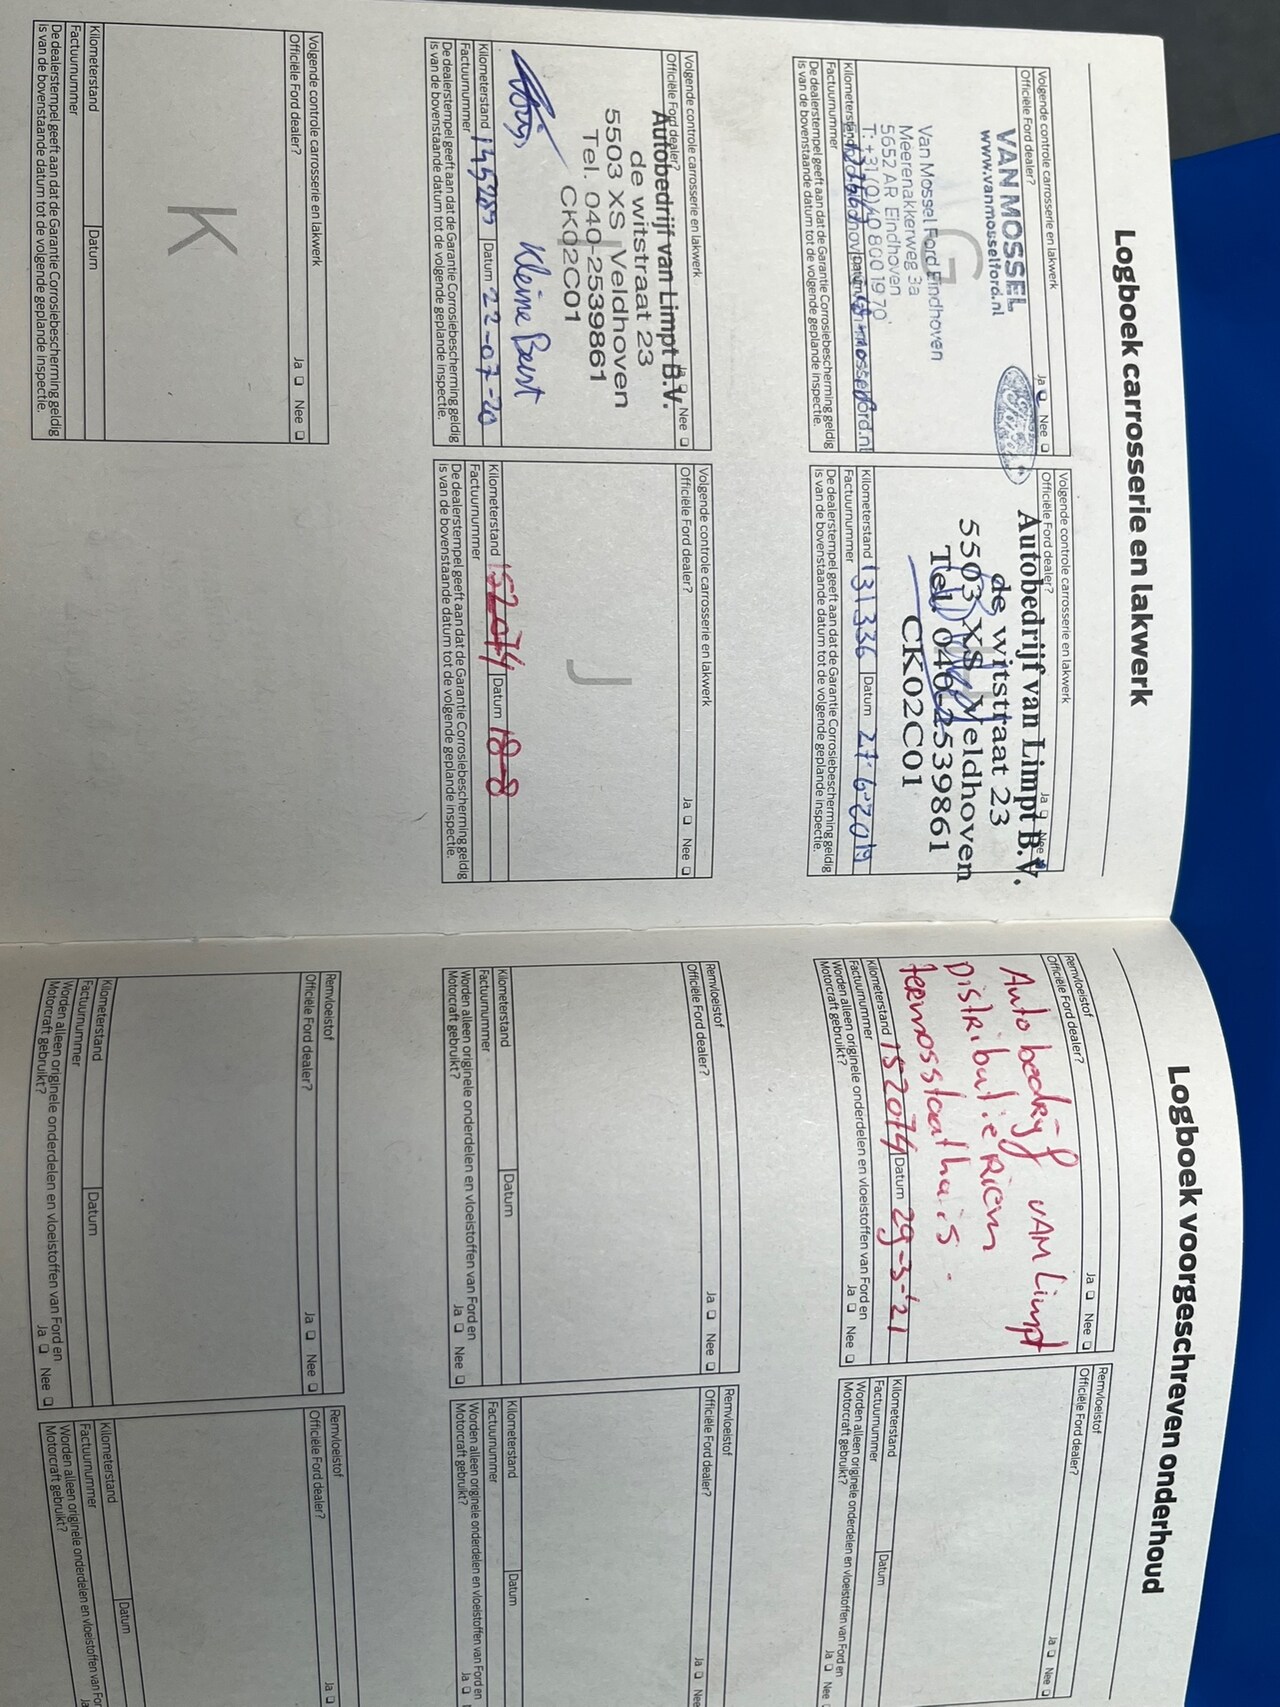 Logboek carrosserie en lakwerk
Volgende controle carrosserie en lakwerk
Officiële Ford dealer? Ja Nee
VAN MOSSEL
www.vanmosselford.nl
Van Mossel Ford Eindhoven
Meerenakkerweg 3a
5652 AR Eindhoven
T: +31 (0)40 800 1970
Kilometerstand Datum
Factuurnummer
De dealerstempel geeft aan dat de Garantie Corrosiebescherming geldig
is van de bovenstaande datum tot de volgende geplande inspectie.
Volgende controle carrosserie en lakwerk
Officiële Ford dealer? Ja Nee
Autobedrijf van Limpt B.V.
de witstraat 23
5503 XS Veldhoven
Tel. 040-2539861
CK02C01
Kilometerstand 131336 Datum 27-6-2019
Factuurnummer
De dealerstempel geeft aan dat de Garantie Corrosiebescherming geldig
is van de bovenstaande datum tot de volgende geplande inspectie.
Volgende controle carrosserie en lakwerk
Officiële Ford dealer? Ja Nee
Autobedrijf van Limpt B.V.
de witstraat 23
5503 XS Veldhoven
Tel. 040-2539861
CK02C01
Kleine Beurt
Kilometerstand Datum 22-07-20
Factuurnummer
De dealerstempel geeft aan dat de Garantie Corrosiebescherming geldig
is van de bovenstaande datum tot de volgende geplande inspectie.
Volgende controle carrosserie en lakwerk
Officiële Ford dealer? Ja Nee
J
Kilometerstand 152074 Datum 18-8
Factuurnummer
De dealerstempel geeft aan dat de Garantie Corrosiebescherming geldig
is van de bovenstaande datum tot de volgende geplande inspectie.
Volgende controle carrosserie en lakwerk
Officiële Ford dealer? Ja Nee
K
Kilometerstand Datum
Factuurnummer
De dealerstempel geeft aan dat de Garantie Corrosiebescherming geldig
is van de bovenstaande datum tot de volgende geplande inspectie.
Logboek voorgeschreven onderhoud
Remvloeistof
Officiële Ford dealer? Ja Nee
Autobedrijf VAM Limpt
Distributie Riem
termosstaathuis.
Kilometerstand 152074 Datum 29-3-'21
Factuurnummer
Worden alleen originele onderdelen en vloeistoffen van Ford en
Motorcraft gebruikt? Ja Nee
Remvloeistof
Officiële Ford dealer? Ja Nee
Kilometerstand Datum
Factuurnummer
Worden alleen originele onderdelen en vloeistoffen van Ford en
Motorcraft gebruikt? Ja Nee
Remvloeistof
Officiële Ford dealer? Ja Nee
Kilometerstand Datum
Factuurnummer
Worden alleen originele onderdelen en vloeistoffen van Ford en
Motorcraft gebruikt? Ja Nee
Remvloeistof
Officiële Ford dealer? Ja Nee
Kilometerstand Datum
Factuurnummer
Worden alleen originele onderdelen en vloeistoffen van Ford en
Motorcraft gebruikt? Ja
Remvloeistof
Officiële Ford dealer? Ja Nee
Kilometerstand Datum
Factuurnummer
Worden alleen originele onderdelen en vloeistoffen van Ford en
Motorcraft gebruikt? Ja Nee
Remvloeistof
Officiële Ford dealer? Ja
Kilometerstand Datum
Factuurnummer
Worden alleen originele onderdelen en vloeistoffen van For
Motorcraft gebruikt? Ja